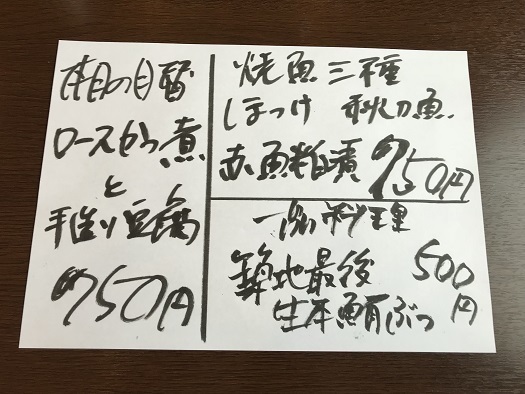 本日の日替
ロースかつ煮
と
手造り豆腐
750円
焼魚三種
しまほっけ 秋刀魚
赤魚粕漬 750円
一品料理
築地最後 500円
生本鮪ぶつ